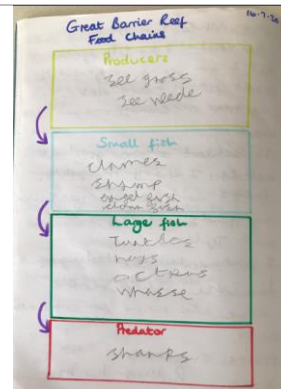 16-7-20
Great Barrier Reef
Food Chains
Producers
See grass
See weede
Small fish
clames
Shrimp
angel fish
clown fish
Large fish
Turtles
rays
octpus
Whasse
Predator
sharks